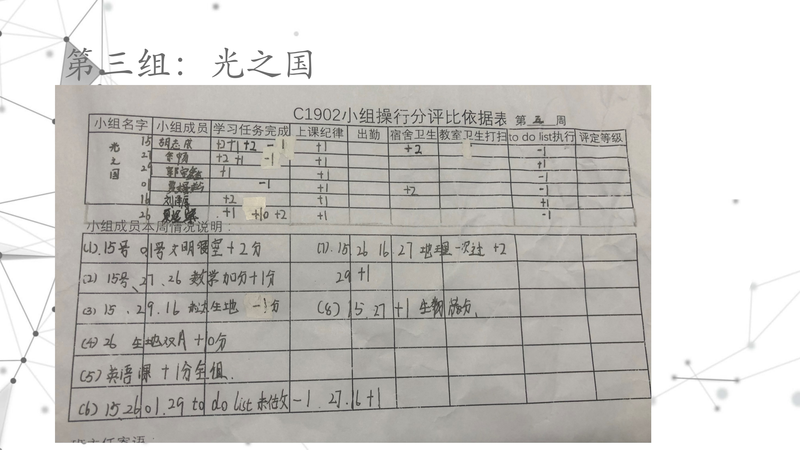 第三组：光之国
C1902小组操行分评比依据表 第 五 周
小组名字 小组成员 学习任务完成 上课纪律 出勤 宿舍卫生 教室卫生打扫 to do list执行 评定等级
光之国
15 +2+1 +2 -1 +1 +2 -1
27 +2 +1 -1 +1 +1
29 +1 +1 -1
01 -1 +1 +2 -1
16 +2 +1 +1
26 +1 +10 +2 +1 -1
小组成员本周情况说明：
(1).15号 01号文明寝室+2分 (7).15 26 16 27 地理一次过 +2
(2) 15号、27.26 数学加分+1分 29 +1
(3) 15 .29.16 生地 -1分 (8) 15.27 +1 生物
(4) 26 生地双A +10分
(5) 英语课 +1分全组.
(6) 15.26 01.29 to do list 未 -1 . 27.16 +1
班主任寄语：